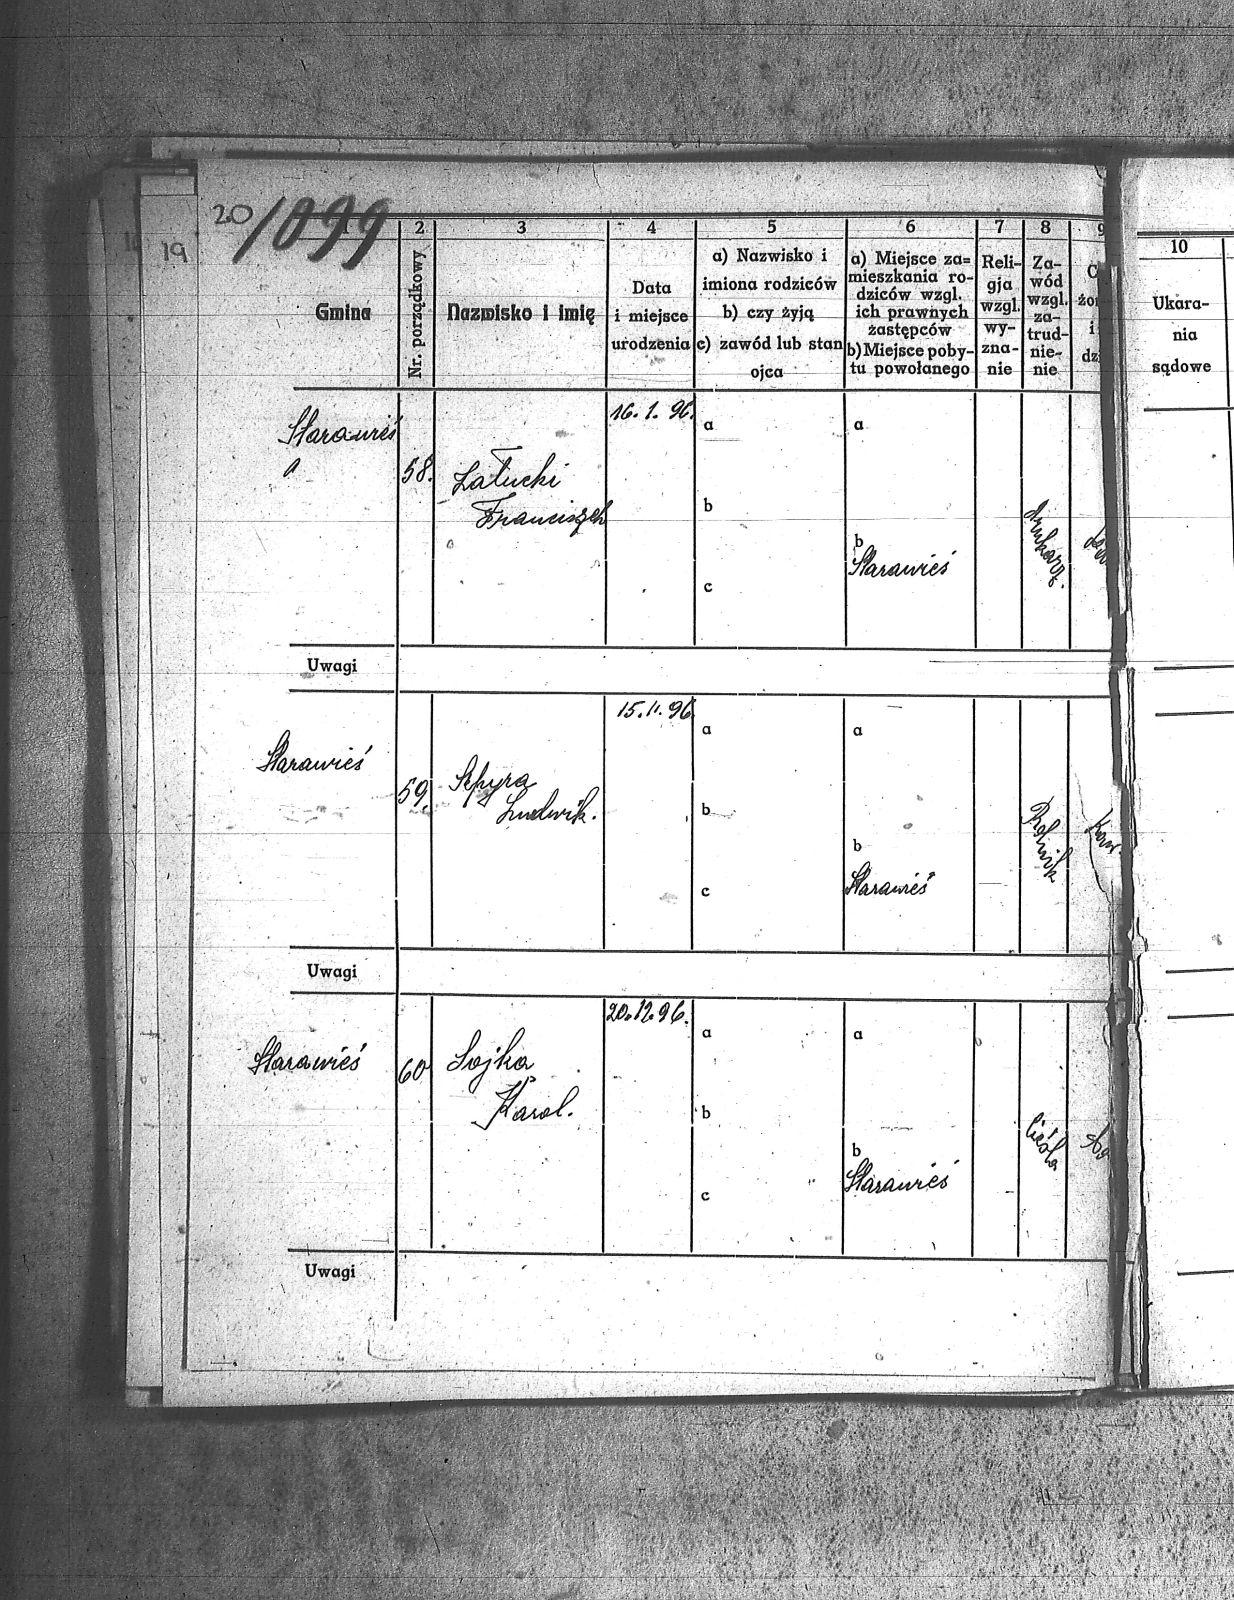 20/1899
19
1
2
3
4
5
6
7
8
9
10
Gmina
Nr. porządkowy
Nazwisko i imię
Data
i miejsce
urodzenia
a) Nazwisko i
imiona rodziców
b) czy żyją
c) zawód lub stan
ojca
a) Miejsce za=
mieszkania ro-
dziców wzgl.
ich prawnych
zastępców
b) Miejsce poby-
tu powołanego
Reli-
gja
wzgl.
wy-
zna-
nie
Za-
wód
wzgl.
za-
trud-
nie-
nie
C
żon
i
dzi
Ukara-
nia
sądowe
Starawieś
58.
Załucki
Franciszek
16.1.96.
a
b
c
a
b
Starawieś
drukarz.
Uwagi
Starawieś
59.
Szpyra
Ludwik.
15.11.96
a
b
c
a
b
Starawieś
Rolnik
Kaw.
Uwagi
Starawieś
60
Sojka
Karol.
20.12.96.
a
b
c
a
b
Starawieś
Cieśla
Uwagi